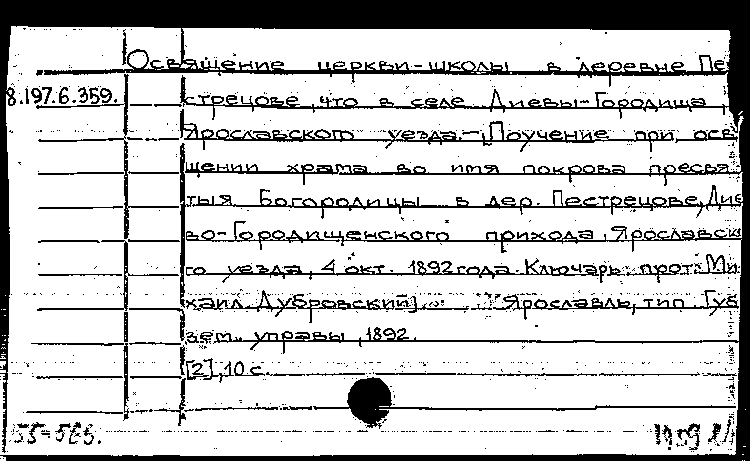 Освящение церкви-школы в деревне Пе
8.197.6.359. стрецове, что в селе Диевы-Городища,
Ярославского уезда.-[Поучение при осв
щении храма во имя покрова пресвя
тыя Богородицы в дер. Пестрецове, Дие
во-Городищенского прихода, Ярославск
го уезда, 4 окт. 1892 года. Ключарь прот. Ми
хаил Дубровский]. Ярославль, тип. Губ
зем. управы, 1892.
[2], 10 с.
55-565.